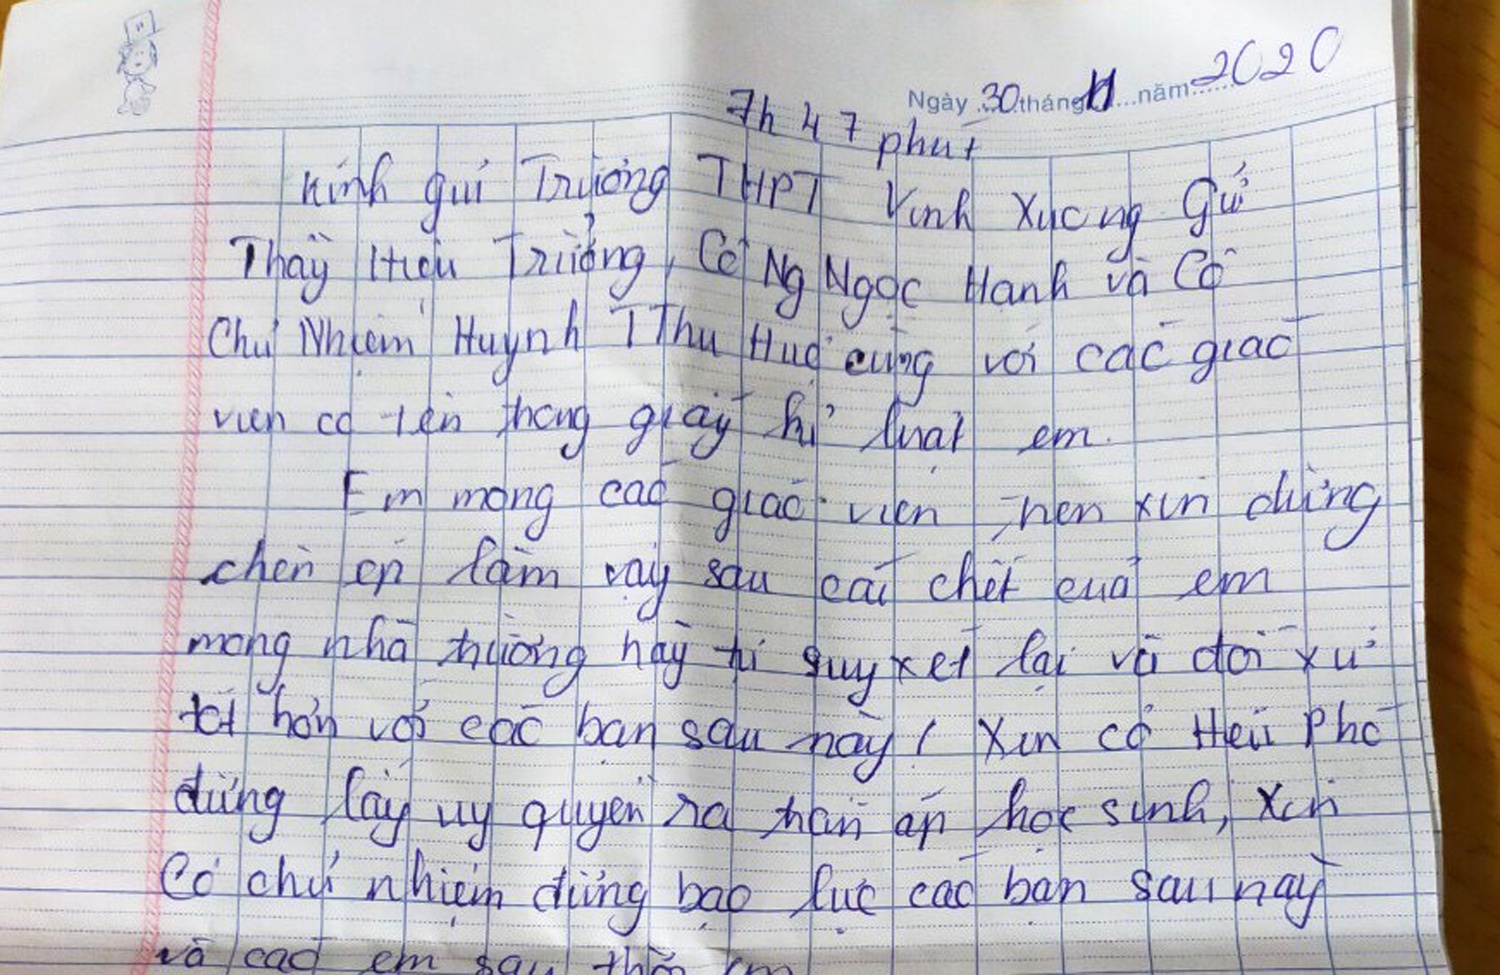 Ngày 30 tháng 11 năm 2020
7h 47 phút
Kính gửi Trường THPT Vĩnh Xương Gửi
Thầy Hiệu Trưởng, Cô Ng Ngọc Hạnh và Cô
Chủ Nhiệm Huỳnh T Thu Huệ cùng với các giáo
viên có tên trong giấy kỉ luật em.
Em mong các giáo viên nên xin đừng
chèn ép làm vậy sau cái chết của em
mong nhà trường hãy tự suy xét lại và đối xử
tốt hơn với các bạn sau này! Xin cô Hiệu Phó
đừng lấy uy quyền ra trấn áp học sinh, Xin
Cô chủ nhiệm đừng bạo lực các bạn sau này
và các em sau